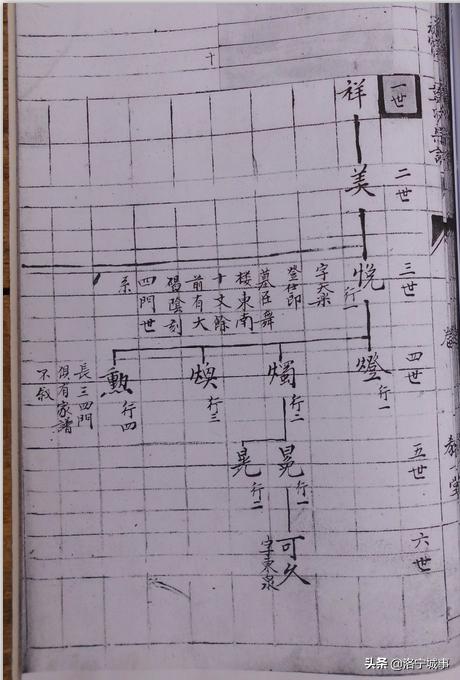 一世
祥
二世
美
三世
悦
行一
字天
登仕郎
墓在舞
楼東南
十丈餘
前有大
碣陰刻
四門世
系
四世
燈
行一
燭
行二
煥
行三
勲
行四
長三四門
俱有家譜
不載
五世
晃
行一
晁
行二
六世
可久
字東泉
頭条 @洛宁城事